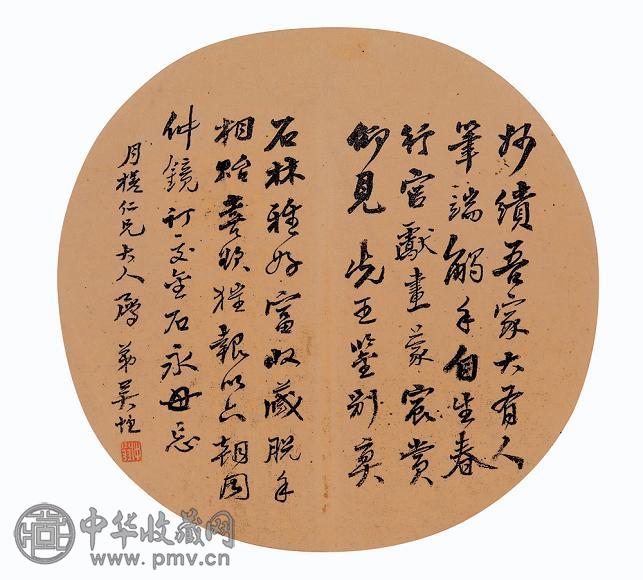 妙績吾家大有人
筆端觸手自生春
行宮獻畫蒙宸賞
仰見 先王鑒別真
石林雅好富收藏脫手
相貽喜欲狂報以六朝周
仲鏡訂交金石永毋忘
月槎仁兄大人屬 弟吳恒
中华收藏网
www.pmv.cn